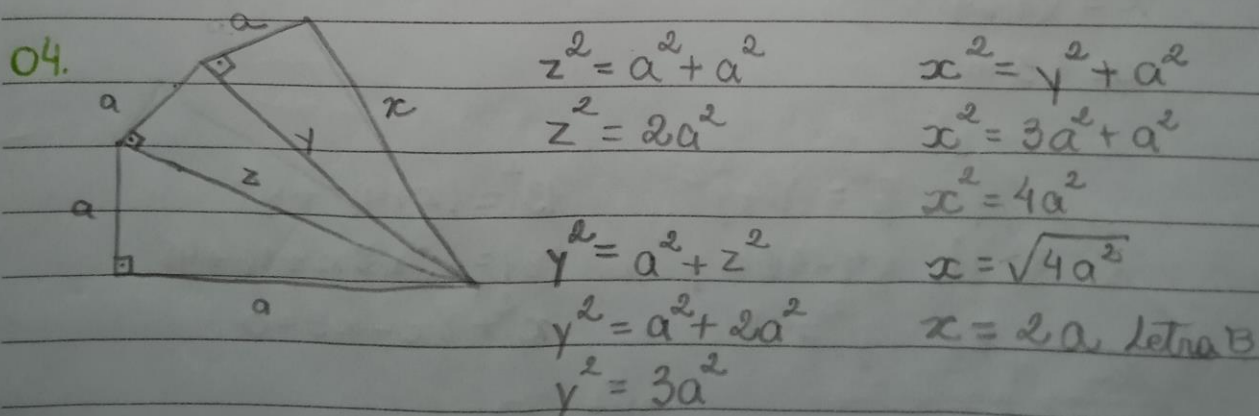 04.
a
a
a
a
x
y
z
z² = a² + a²
z² = 2a²
y² = a² + z²
y² = a² + 2a²
y² = 3a²
x² = y² + a²
x² = 3a² + a²
x² = 4a²
x = √4a²
x = 2a, Letra B